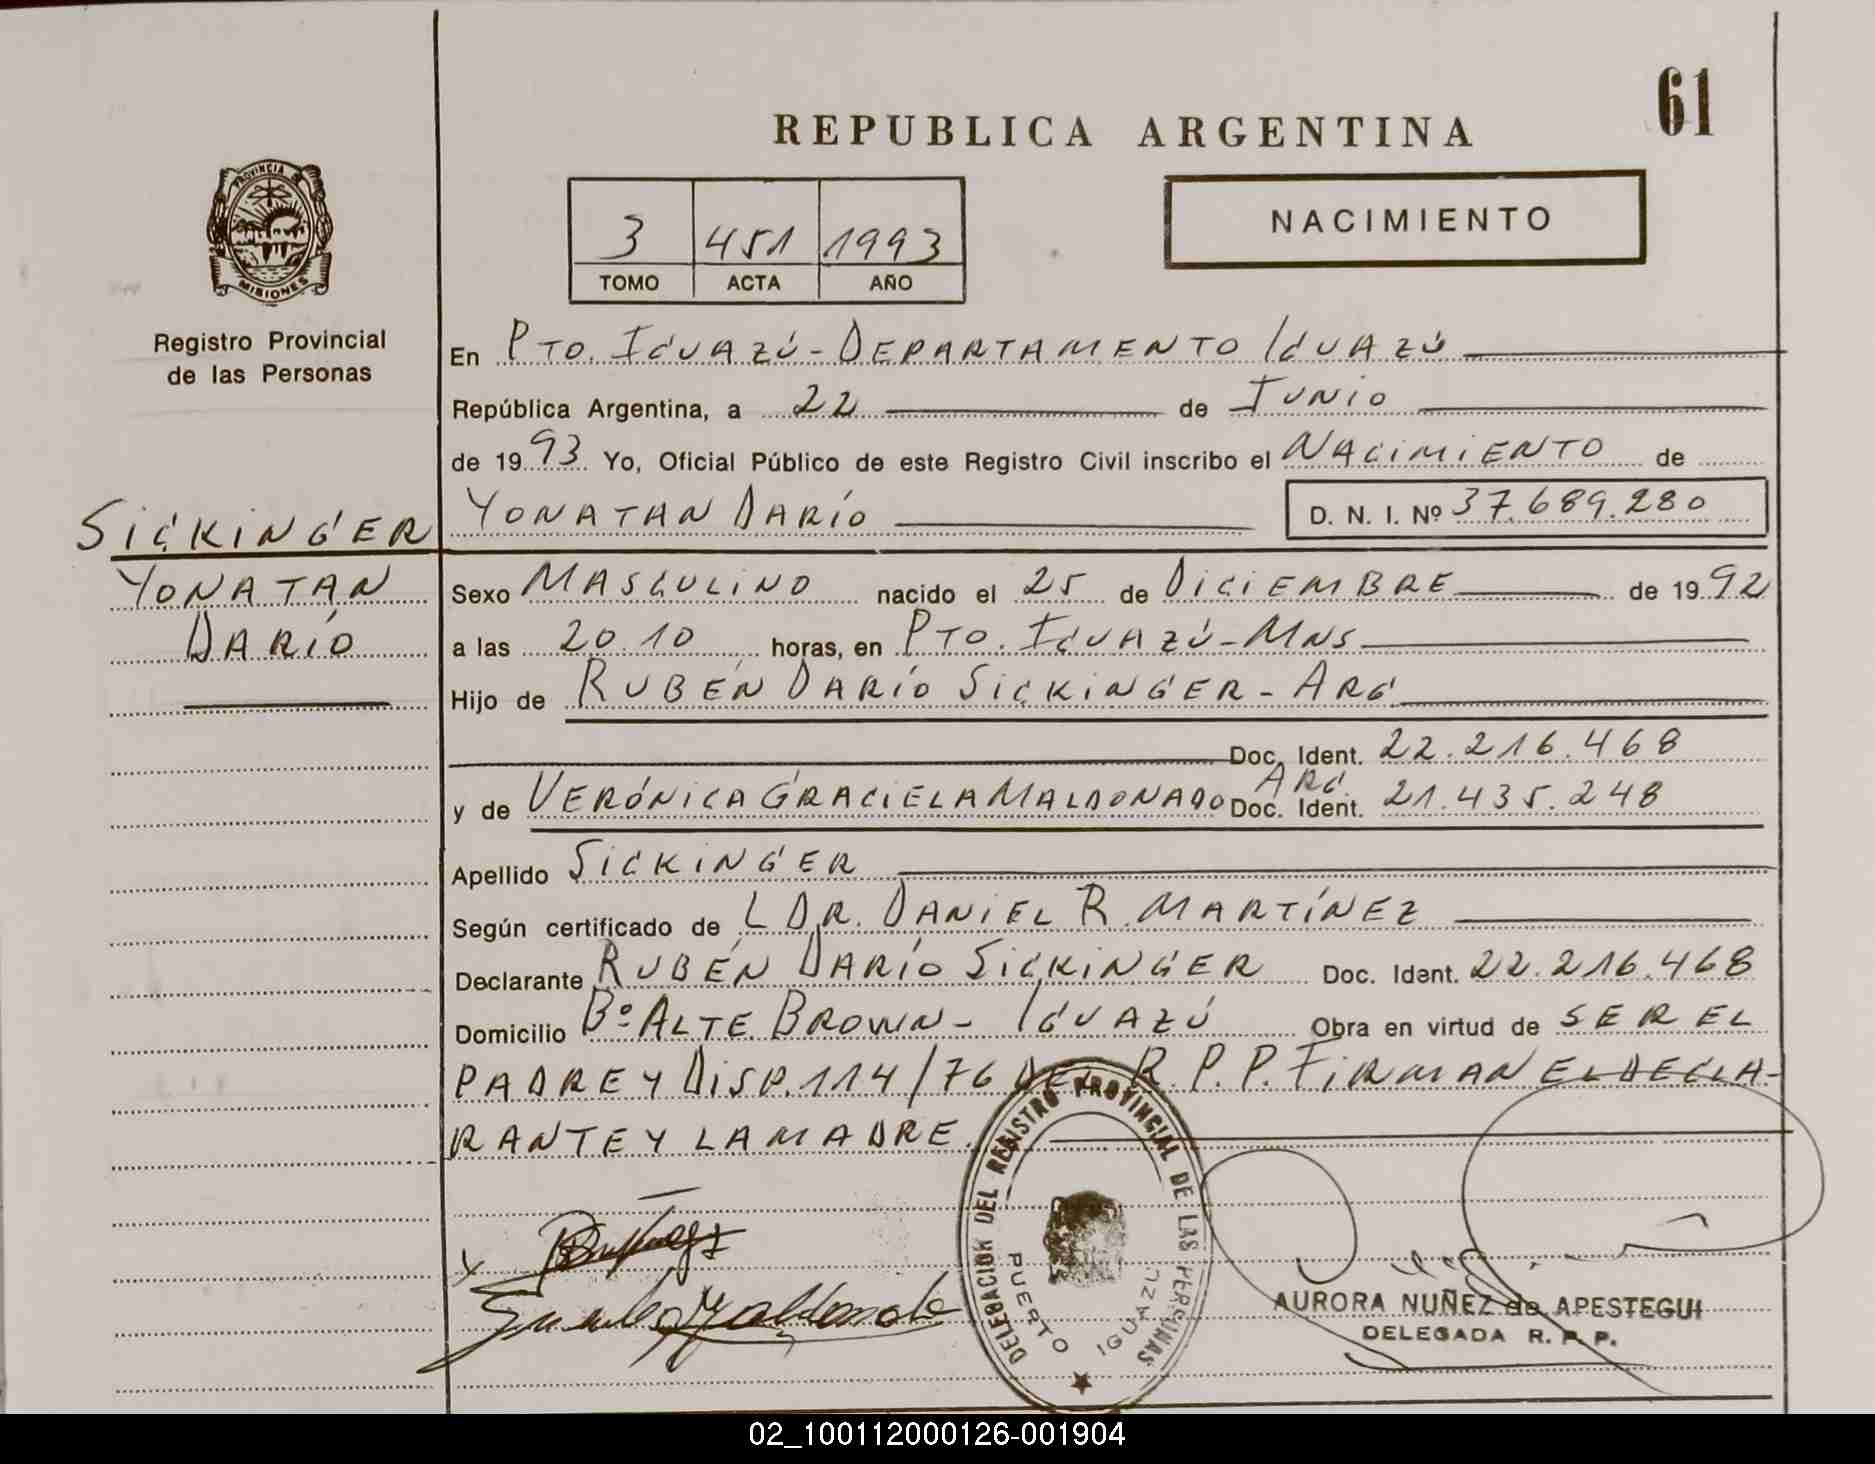 61
REPUBLICA ARGENTINA
PROVINCIA DE
MISIONES
3 451 1993
TOMO ACTA AÑO
NACIMIENTO
Registro Provincial
de las Personas
En PTO. IGUAZÚ - DEPARTAMENTO IGUAZÚ
República Argentina, a 22 de JUNIO
de 1993 Yo, Oficial Público de este Registro Civil inscribo el NACIMIENTO de
SICKINGER
YONATAN DARÍO D. N. I. Nº 37.689.280
YONATAN
DARÍO
Sexo MASCULINO nacido el 25 de DICIEMBRE de 1992
a las 20.10 horas, en PTO. IGUAZÚ - MNS
Hijo de RUBÉN DARÍO SICKINGER - ARG
Doc. Ident. 22.216.468
y de VERÓNICA GRACIELA MALDONADO ARG. Doc. Ident. 21.435.248
Apellido SICKINGER
Según certificado de L DR. DANIEL R. MARTÍNEZ
Declarante RUBÉN DARÍO SICKINGER Doc. Ident. 22.216.468
Domicilio Bº ALTE. BROWN - IGUAZÚ Obra en virtud de SER EL
PADRE Y DISP. 114/76 DEL R. P. P. FIRMAN EL DECLA-
RANTE Y LA MADRE.
DELEGACION DEL REGISTRO PROVINCIAL DE LAS PERSONAS
PUERTO IGUAZU
AURORA NUÑEZ de APESTEGUI
DELEGADA R. P. P.
02_100112000126-001904